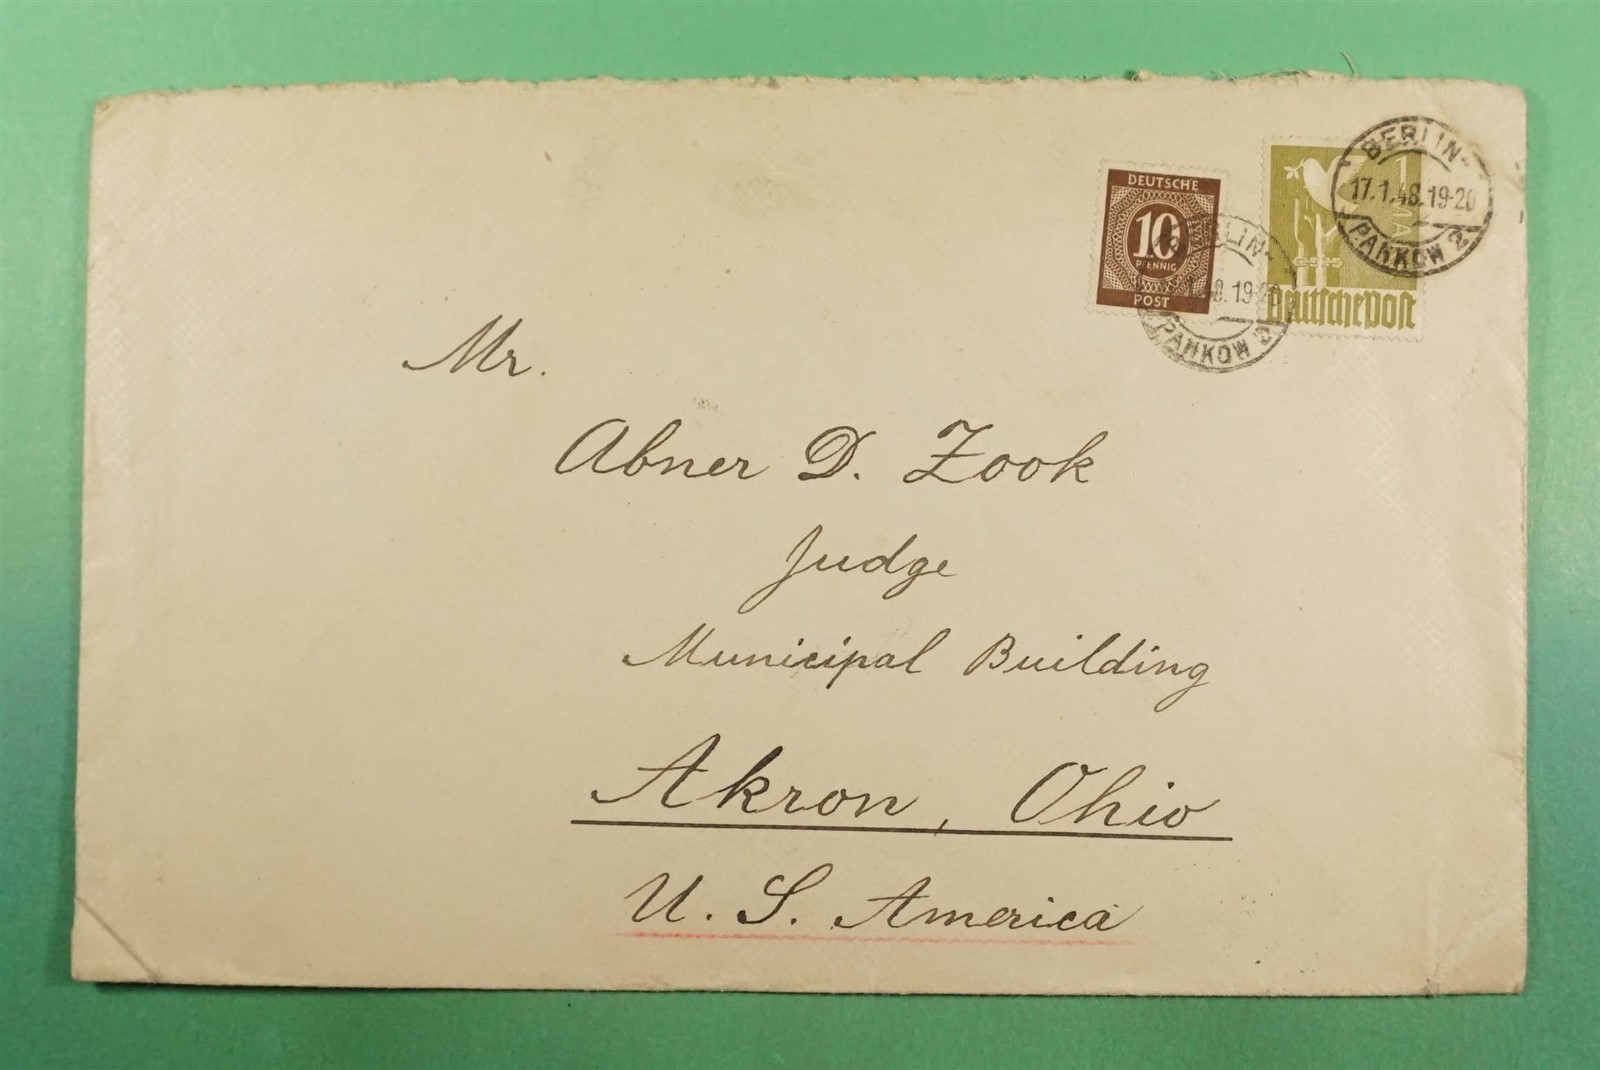 DEUTSCHE
10
PFENNIG
POST
1 MA
Deutsche Post
BERLIN-
17.1.48.19-20
PANKOW 2
LIN-
1.48.19-20
PANKOW 2
Mr.
Abner D. Zook
Judge
Municipal Building
Akron, Ohio
U. S. America